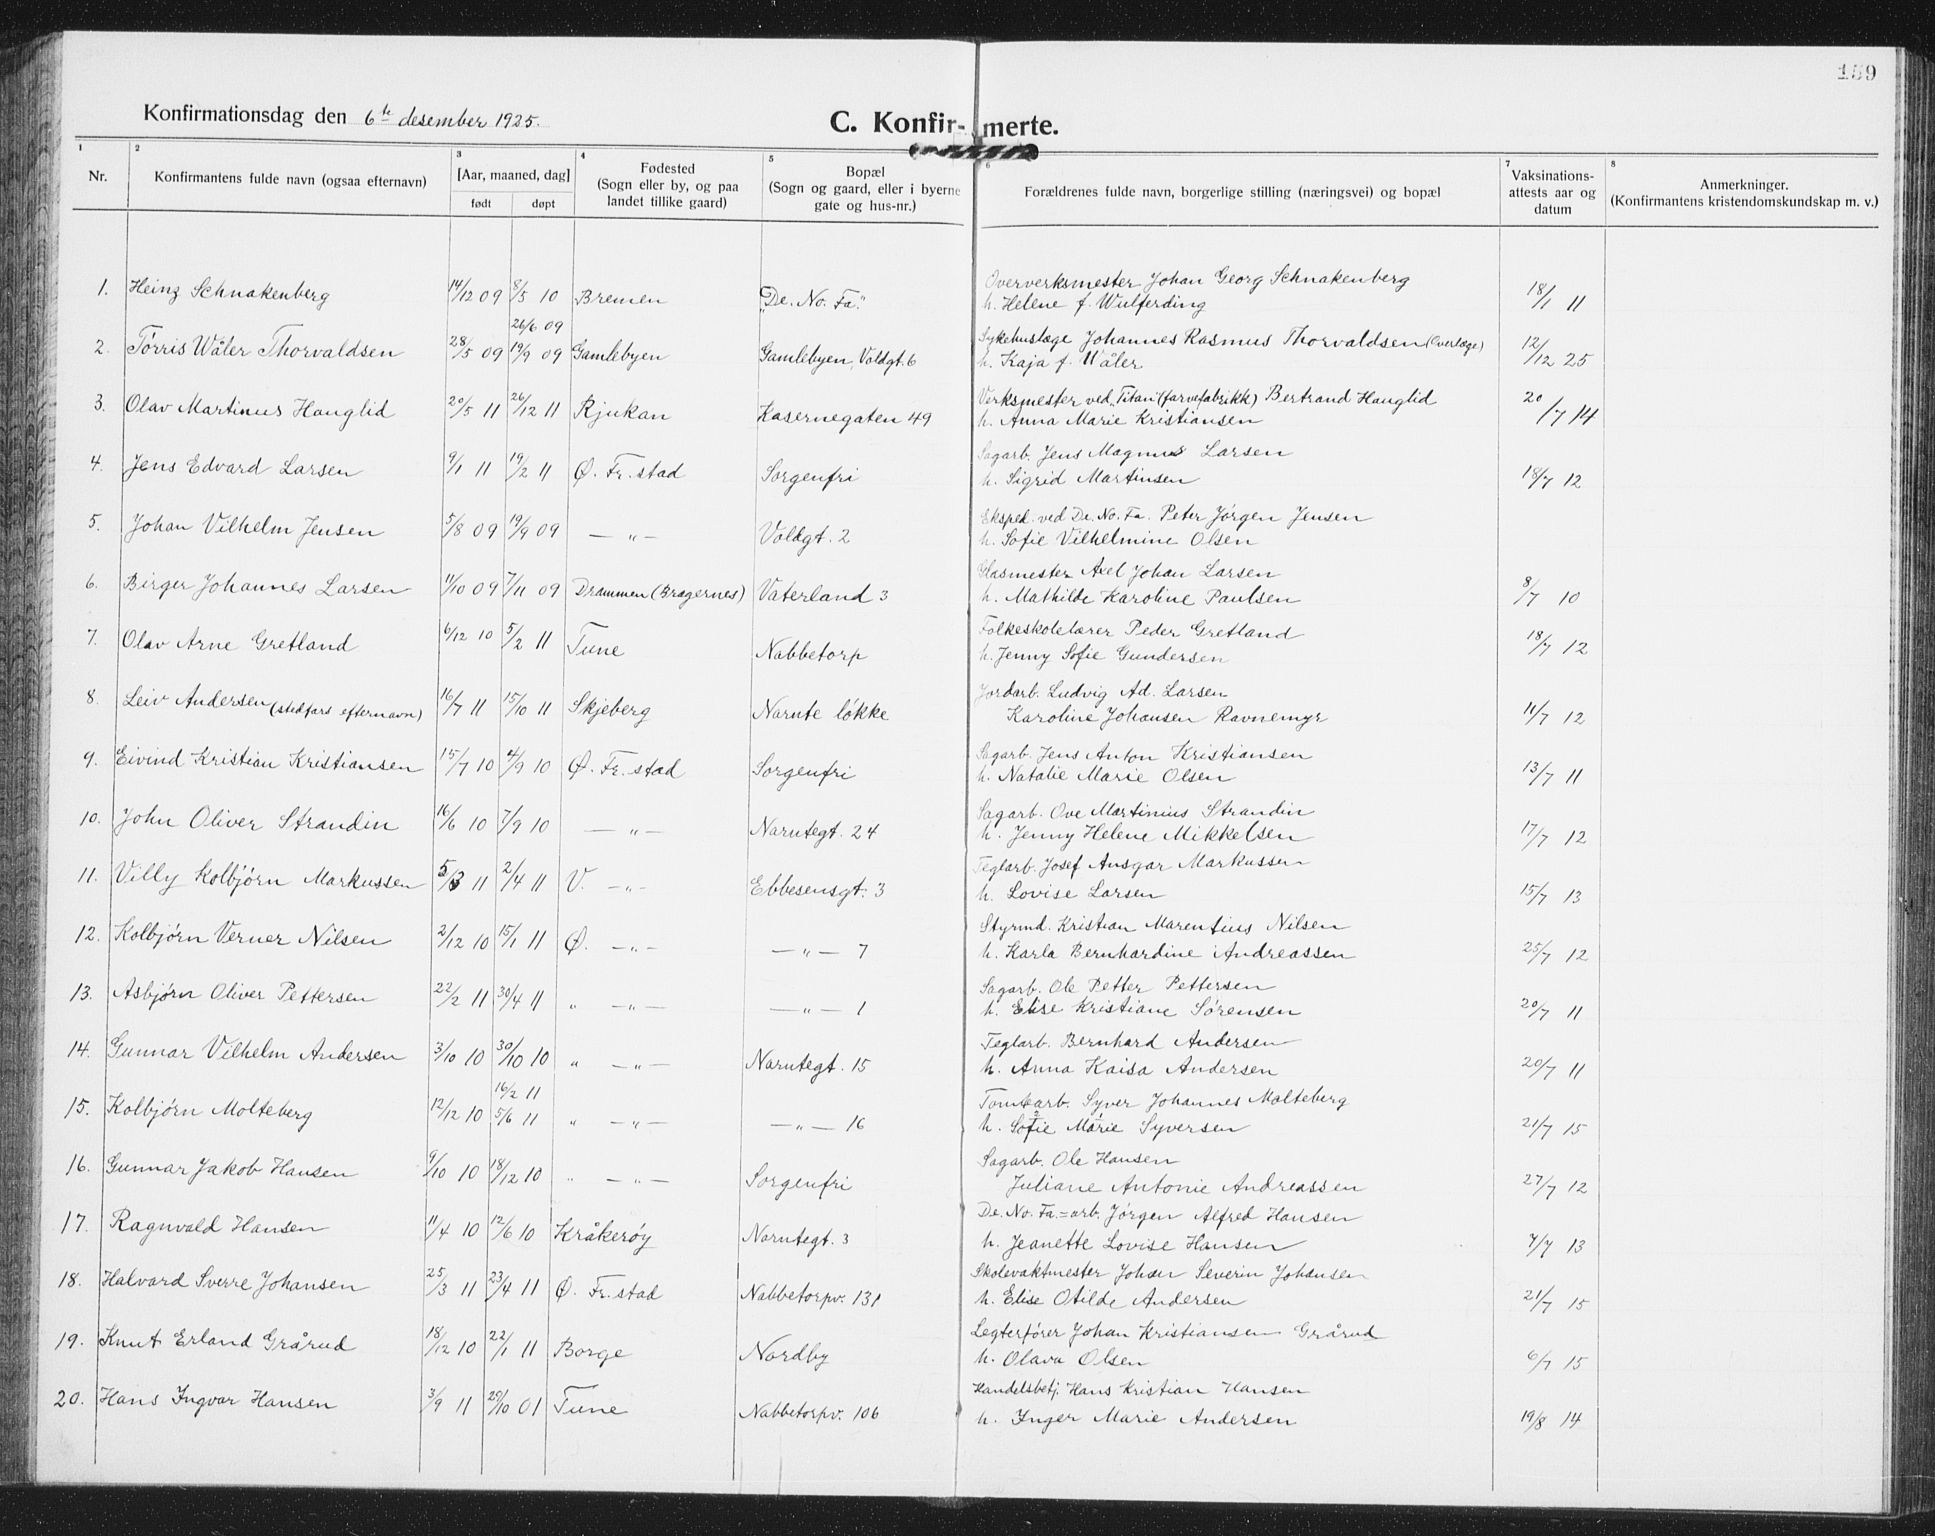 159
Konfirmationsdag den 6te desember 1925.
C. Konfir- merte.
1 2 3 4 5 6 7 8
Nr.
Konfirmantens fulde navn (ogsaa efternavn)
[Aar, maaned, dag]
født døpt
Fødested
(Sogn eller by, og paa
landet tillike gaard)
Bopæl
(Sogn og gaard, eller i byerne
gate og hus-nr.)
Forældrenes fulde navn, borgerlige stilling (næringsvei) og bopæl
Vaksinations-
attests aar og
datum
Anmerkninger.
(Konfirmantens kristendomskundskap m. v.)
1. Heinz Schnakenberg 14/12 09 8/5 10 Bremen „De. No. Fa." Oververksmester Johan Georg Schnakenberg
h. Helene f. Wulferding 18/1 11
26/6 09
2. Tørris Wåler Thorvaldsen 28/5 09 19/9 09 Gamlebyen Gamlebyen, Voldgt. 6 Sykehuslæge Johannes Rasmus Thorvaldsen (Overlæge)
h. Kaja f. Wåler 12/12 25
3. Olav Martinus Hauglid 20/5 11 26/12 11 Rjukan Kasernegaten 49 Verksmester ved „Titan" (farvefabrikk) Bertrand Hauglid
h. Anna Marie Kristiansen 20/7 14
4. Jens Edvard Larsen 9/1 11 19/2 11 Ø. Fr.stad Sorgenfri Sagarb. Jens Magnus Larsen
h. Sigrid Martinsen 18/7 12
5. Johan Vilhelm Jensen 5/8 09 19/9 09 — „ — Voldgt. 2 Eksped. ved De. No. Fa. Peter Jørgen Jensen
h. Sofie Vilhelmine Olsen
6. Birger Johannes Larsen 11/10 09 7/11 09 Drammen (Bragernes) Vaterland 3 Glasmester Axel Johan Larsen
h. Mathilde Karoline Paulsen 8/7 10
7. Olav Arne Gretland 6/12 10 5/2 11 Tune Nabbetorp Folkeskolelærer Peder Gretland
h. Jenny Sofie Gundersen 18/7 12
8. Leiv Andersen (stedfars efternavn) 16/7 11 15/10 11 Skjeberg Narnte løkke Jordarb. Ludvig Ad. Larsen
Karoline Johansen Ravnemyr 11/7 12
9. Eivind Kristian Kristiansen 15/7 10 4/9 10 Ø. Fr.stad Sorgenfri Sagarb. Jens Anton Kristiansen
h. Natalie Marie Olsen 13/7 11
10. John Oliver Strandin 16/6 10 7/9 10 — „ — Narntegt. 24 Sagarb. Ove Martinius Strandin
h. Jenny Helene Mikkelsen 17/7 12
11. Villy Kolbjørn Markussen 5/3 11 2/4 11 V. — „ — Ebbesensgt. 3 Teglarb. Josef Ansgar Markussen
h. Lovise Larsen 15/7 13
12. Kolbjørn Verner Nilsen 2/12 10 15/1 11 Ø. — „ — — „ — 7 Styrmd. Kristian Marentius Nilsen
h. Karla Bernhardine Andreassen 25/7 12
13. Asbjørn Oliver Pettersen 22/2 11 30/4 11 „ — „ — — „ — 1 Sagarb. Ole Petter Pettersen
h. Elise Kristiane Sørensen 20/7 11
14. Gunnar Vilhelm Andersen 3/10 10 30/10 10 „ — „ — Narntegt. 15 Teglarb. Bernhard Andersen
h. Anna Kaisa Andersen 20/7 11
16/2 11
15. Kolbjørn Molteberg 12/12 10 5/6 11 „ — „ — — „ — 16 Tomtarb. Syver Johannes Molteberg
h. Sofie Marie Syversen 21/7 15
16. Gunnar Jakob Hansen 9/10 10 18/12 10 „ — „ — Sorgenfri Sagarb. Ole Hansen
Juliane Antonie Andreassen 27/7 12
17. Ragnvald Hansen 11/4 10 12/6 10 Kråkerøy Narntegt. 3 De. No. Fa.=arb. Jørgen Alfred Hansen
h. Jeanette Lovise Hansen 7/7 13
18. Halvard Sverre Johansen 25/3 11 23/4 11 Ø. Fr.stad Nabbetorpv. 131 Skolevaktmester Johan Severin Johansen
h. Elise Otilde Andersen 21/7 15
19. Knut Erland Grårud 18/12 10 22/1 11 Borge Nordby Legterfører Johan Kristiansen Grårud
h. Olava Olsen 6/7 15
20. Hans Ingvar Hansen 3/9 11 29/10 01 Tune Nabbetorpv. 106 Handelsbetj. Hans Kristian Hansen
h. Inger Marie Andersen 19/8 14